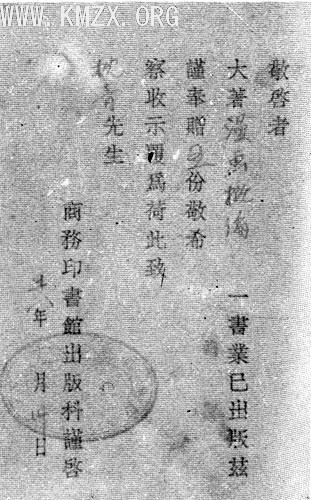 WWW.KMZX.ORG
敬啓者
大著漫画概論一書業已出版茲
謹奉贈份敬希
察收示覆爲荷此致
先生
商務印書館出版科謹啓
年月日